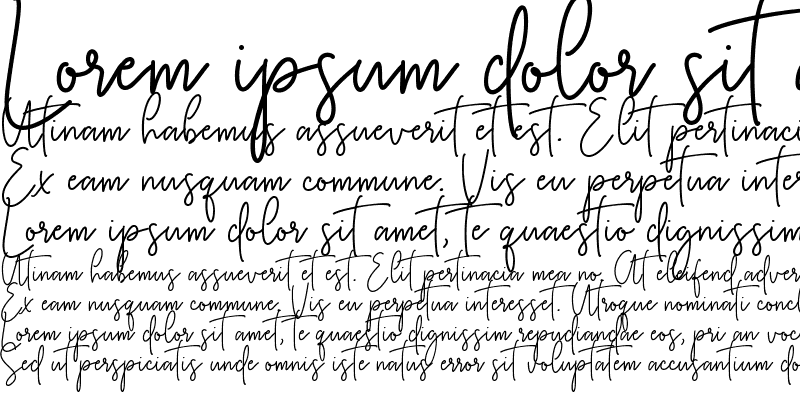 Lorem ipsum dolor sit
Utinam habemus assueverit et est. Elit pertinaci
Ex eam nusquam commune. Vis eu perpetua inter
Lorem ipsum dolor sit amet, te quaestio dignissim
Utinam habemus assueverit et est. Elit pertinacia mea no. At eleifend adver
Ex eam nusquam commune. Vis eu perpetua interesset. Utroque nominati concl
Lorem ipsum dolor sit amet, te quaestio dignissim repudiandae eos, pri an voc
Sed ut perspiciatis unde omnis iste natus error sit voluptatem accusantium do